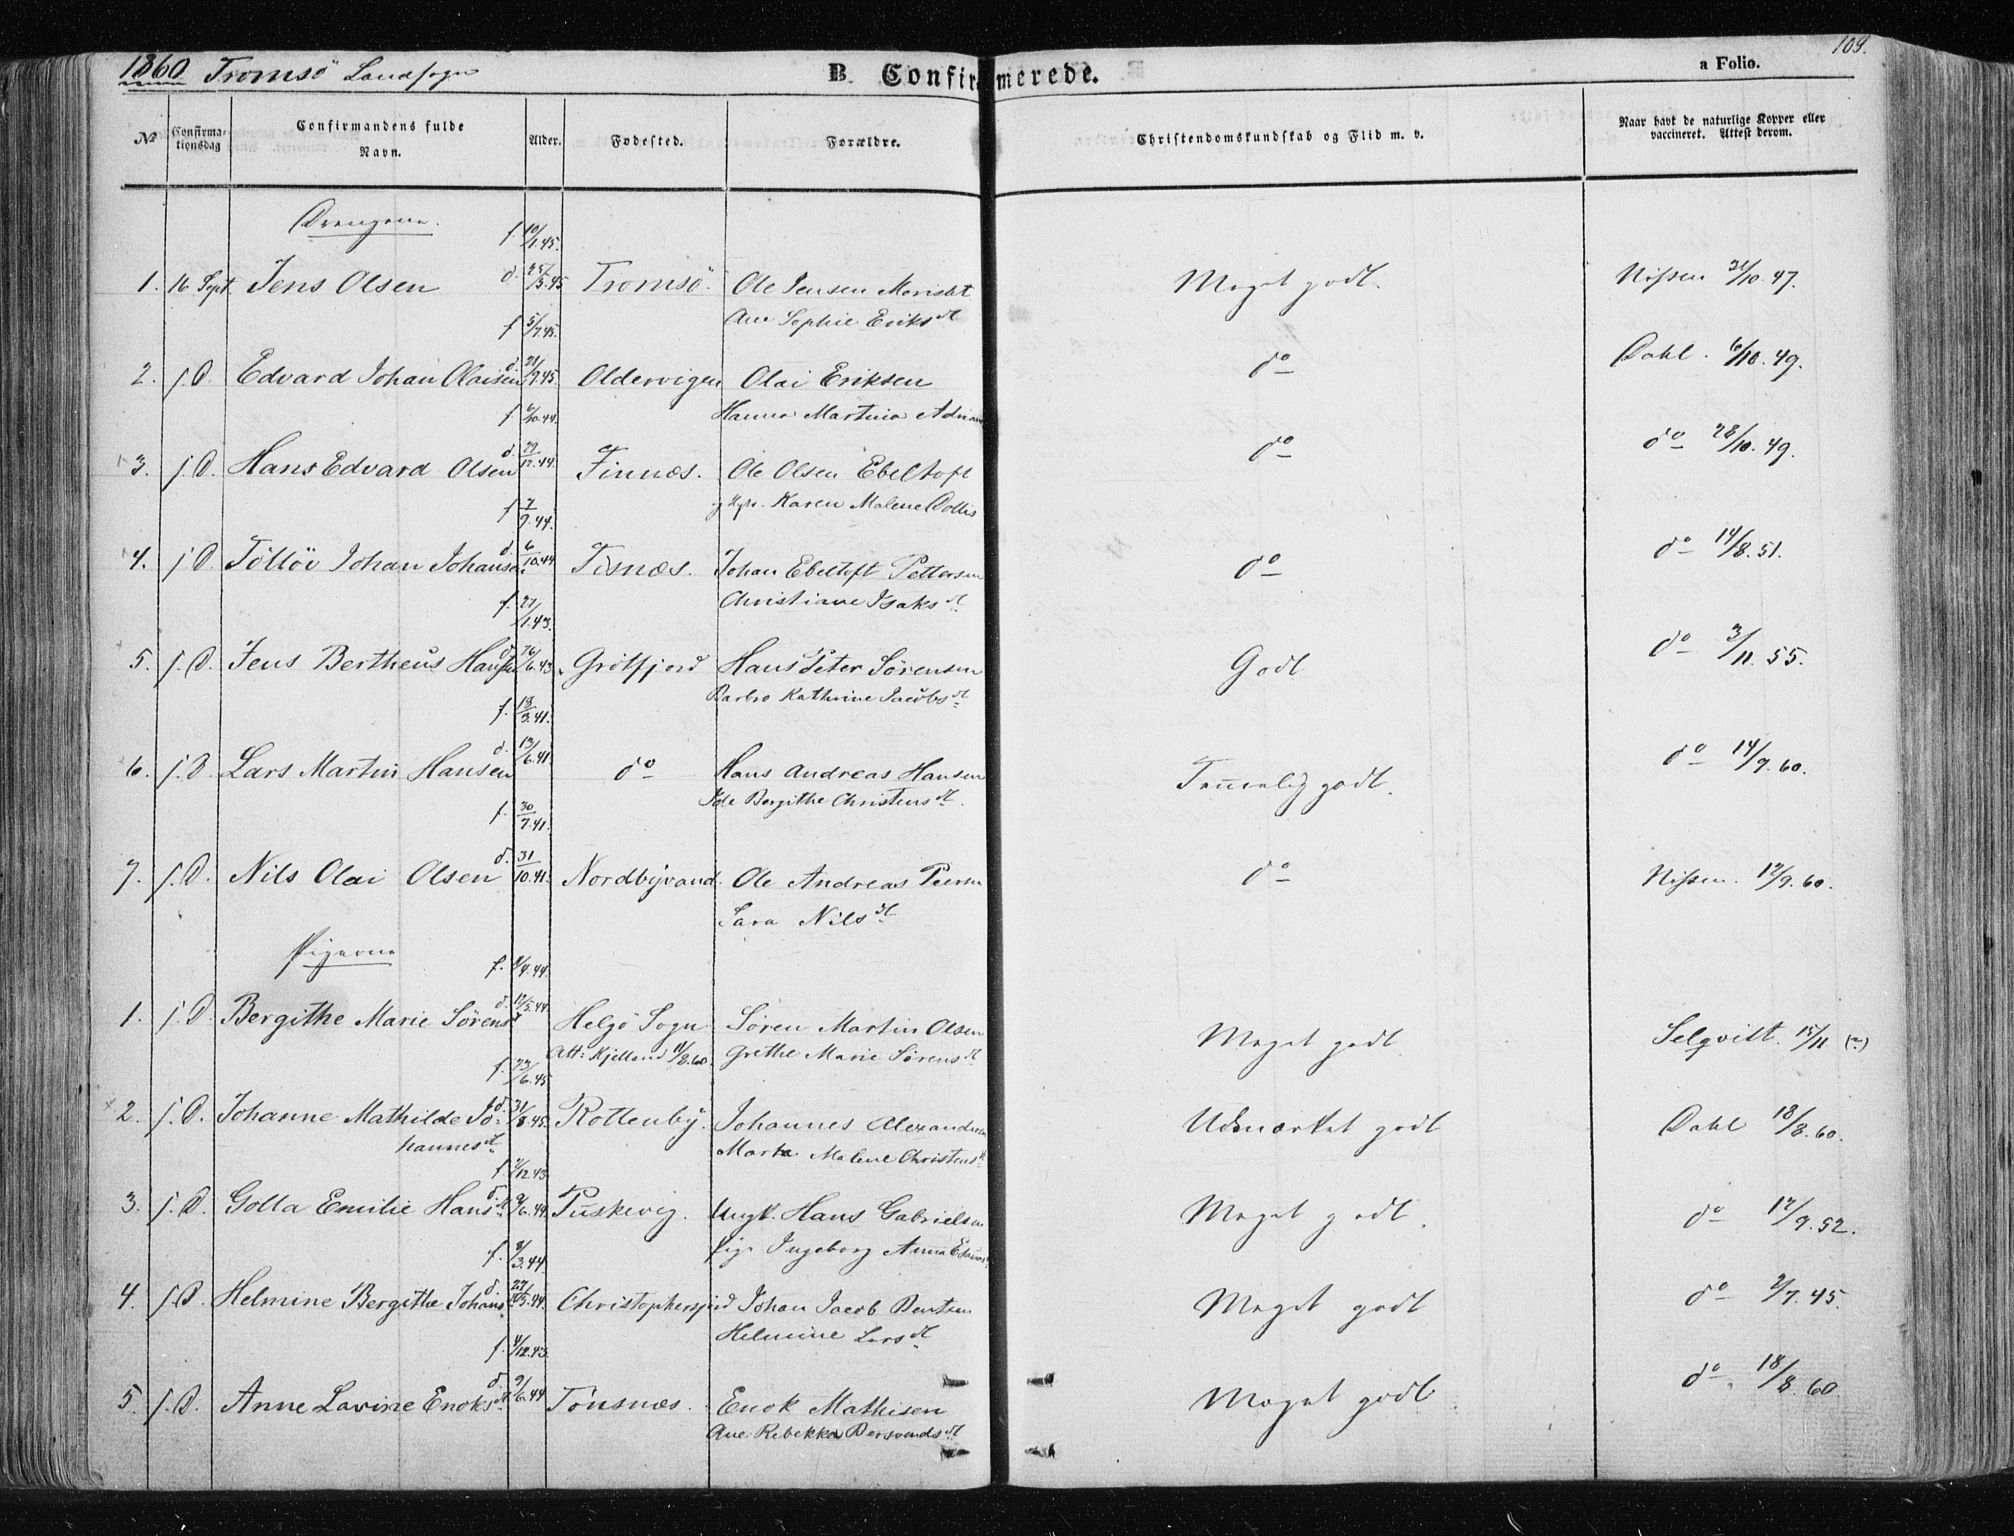 1860 Tromsö Landsogn B. Confirmerede. a Folio. 109.
No Confirmationsdag Confirmandens fulde Navn. Alder. Fødested. Forældre. Christendomskundskab og Flid m. v. Naar havt de naturlige Kopper eller vaccineret. Attest derom.
Drengene.
f. 10/1.45.
1. 16 Sept. Jens Olsen d. 25/3.45 Tromsö. Ole Jensen Meget godt. Nissen 21/10.47.
f 5/7.45. Ane Sophie Eriksdt
2. s. D. Edvard Johan Olaisen d. 21/9.45. Oldervigen Olai Eriksen do Dahl. 6/10.49.
f 6/10.44. Hanna Martina
3. s. D. Hans Edvard Olsen d. 29/12.44. Finnæs. Ole Olsen Ebeltoft do do 28/10.49.
f 7/9.44. Karen Malene
4. s. D. Tölløv Johan Johansen d. 6/10.44 Tisnæs. Johan Ebeltoft Pettersen do do 14/8.51.
f. 27/1.43. Christiane Isaksdt.
5. s. D. Jens Bertheus Hansen d. 26/6.43. Grötfjord Hans Peter Sörensen Godt do 3/11.55.
f. 13/3.41. Barbro Kathrine Jacobsdt.
6. s. D. Lars Martin Hansen d. 13/6.41. do Hans Andreas Hansen Temmelig godt. do 14/9.60.
f. 30/7.41. Ide Bergithe Christensdt.
7. s. D. Nils Olai Olsen d. 31/10.41. Nordbyvand. Ole Andreas do Nissen. 12/9.60.
Sara Nilsdt
Pigerne f. 4/4.44.
1. s. D. Bergithe Marie Sörensdt d. 12/5.44. Helgö Sogn Sören Martin Olsen Meget godt. Selqvitt. 15/11 (?)
f. 23/6.45 Att: Kjelland 11/8.60. Grethe Marie Sörensdt
2. s. D. Johanne Mathilde Jo- d. 31/8.45. Rottenby. Johannes Alexandersen Udmærket godt Dahl 18/8.60.
hannesdt. f. 2/12.43 Marta Malene Christensdt
3. s. D. Golla Emilie Hansdt d. 9/6.44. Puskevig. Ungk. Hans Gabrielsen Meget godt. do 12/9.52.
f. 8/3.44 Pige Ingeborg Anna
4. s. D. Helmine Bergithe Johansdt d. 27/5.44. Christophersfjord Johan Jacob Bentsen Meget godt do 2/7.45.
f. 4/12.43. Helmine Larsdt
5. s. D. Anne Lavine Enoksdt d. 9/6.44 Tönsnæs. Enok Mathisen Meget godt do 18/8.60.
Ane Rebekka Bersvendsdt